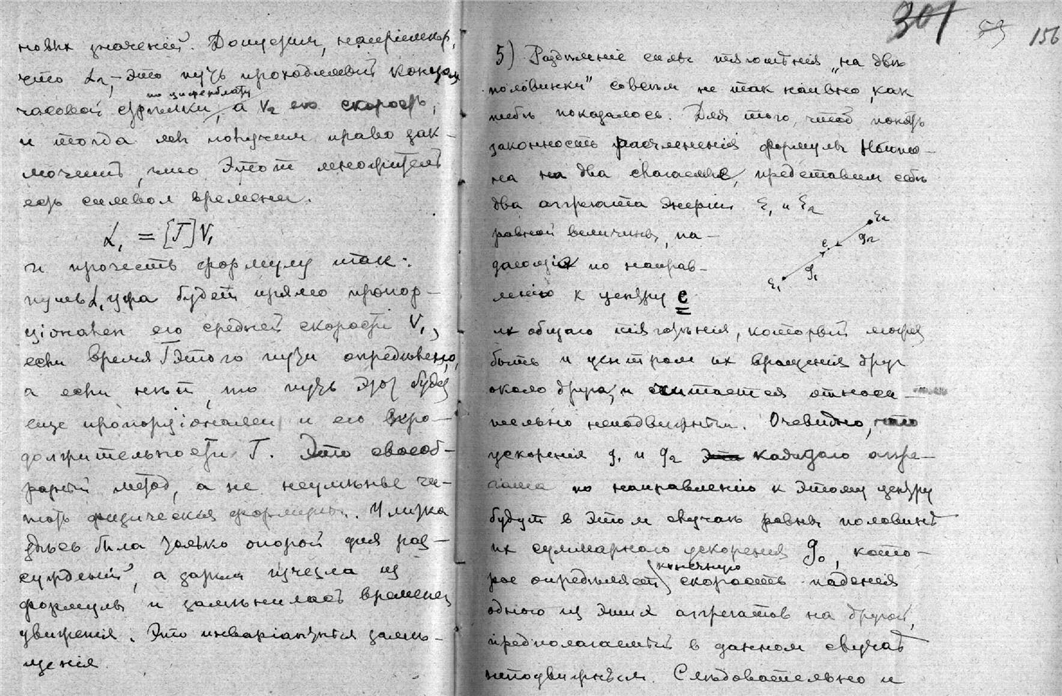 новых значеній. Допустим, например,
что L₂ – это путь проходимый концом
по циферблату
часовой стрѣлки, а V₂ его скорость,
и тогда мы получим право зак-
лючить, что Этот множитель
есть символ времени.
L₁ = [T] V₁
и прочесть формулу так:
путь L₁ уфа будет прямо пропор-
ціонален его средней скорости V₁,
если время T этого пути опредѣлено,
а если нѣт, то путь этот будет
еще пропорціонален и его про-
должительности T. Это своеоб-
разный метод, а не неумѣнье чи-
тать физическія формулы.
здѣсь была только опорой для раз-
сужденій, а затем изчезла из
формулы и замѣнилась временем
движенія. Это инваріантныя замѣ-
щенія.
301 53 156
5) Раздѣленіе силы тяготѣнія „на двѣ
половинки" совсѣм не так наивно, как
тебѣ показалось. Для того, чтоб понять
законность расчлененія формулы Ньюто-
на на два слагаемые, представим себѣ
два аггрегата Энергіи ξ₁ и ξ₂
равной величины, па-
дающія по направ-
ленію к центру с
их общаго тяготѣнія, который может
быть и центром их вращенія друг
около друга, и считается относи-
тельно неподвижным. Очевидно, что
ускоренія g₁ и g₂ каждаго аггре-
гата по направленію к этому центру
будут в этом случаѣ равны половинѣ
их суммарного ускоренія g₀, кото-
конечную
рое опредѣляет скорость паденія
одного из этих аггрегатов на другой,
предполагаемый в данном случаѣ
неподвижным. Слѣдовательно и
ξ₂
c g₂
g₁
ξ₁